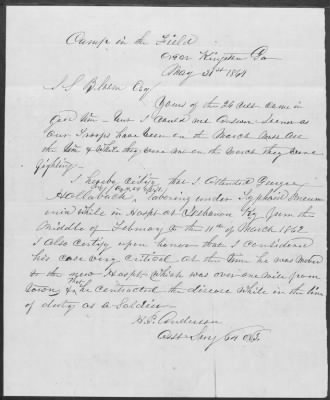 Camp in the Field
near Kingston Ga
May 31st 1864
Esq
Yours of the 26 inst came in
good time - but I could not answer sooner as
our Troops have been on the March most all
the time & while they were not on the march they were
fighting.
I hereby certify that I attended George
Hollabach, laboring under Typhoid Pneum
onia while in Hospt at Lebanon Ky from the
Middle of February to the 11th of March 1862.
I also Certify upon honor that I considered
his case very critical at the time he was moved
to the new Hospt which was over one mile from
town, & that he contracted the disease while in the line
of duty as a Soldier
H. P. Anderson
Asst Surg